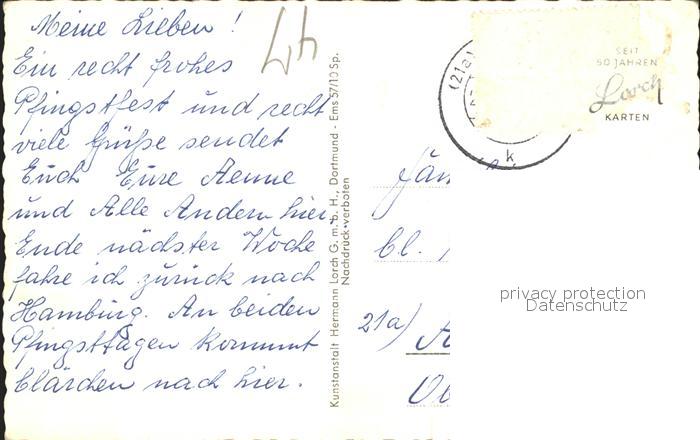 Meine Lieben!
Ein recht frohes
Pfingstfest und recht
viele Grüße sendet
Euch Eure Aenne
und Alle Andern hier.
Ende nächster Woche
fahre ich zurück nach
Hamburg. An beiden
Pfingsttagen kommt
Clärchen nach hier.
Kunstanstalt Hermann Lorch G. m. b. H., Dortmund - Ems 57/10 Sp.
Nachdruck verboten
(21a)
k
SEIT
50 JAHREN
Lorch
KARTEN
21a)
privacy protection
Datenschutz